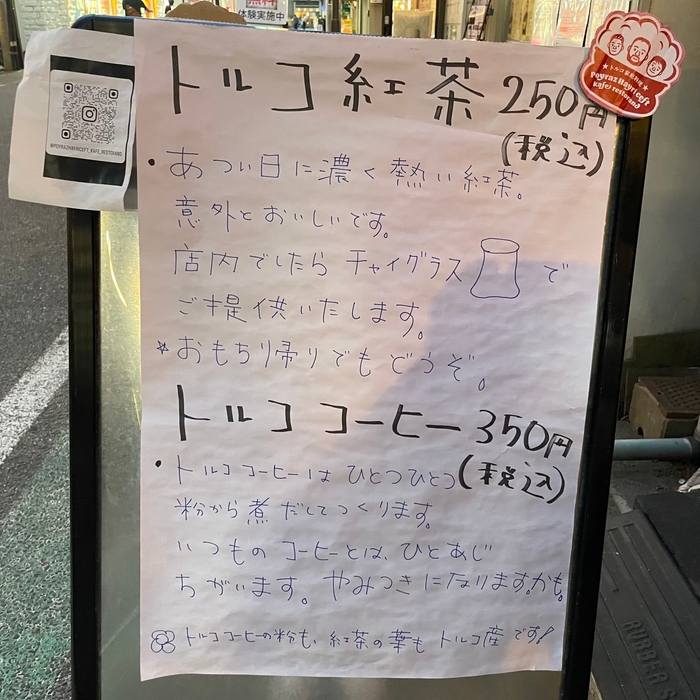 無料
体験実施中
トルコ紅茶 250円
(税込)
・あつい日に濃く熱い紅茶。
意外とおいしいです。
店内でしたら チャイグラス で
ご提供いたします。
☆おもち帰りでもどうぞ。
トルココーヒー 350円
(税込)
・トルココーヒーは ひとつひとつ
粉から煮だしてつくります。
いつものコーヒーとは、ひとあじ
ちがいます。やみつきになりますかも。
トルココーヒーの粉も、紅茶の葉も トルコ産です!
@POYRAZHAYRICEFT_KAFE_RESTORAND
★トルコ家庭料理★
Poyraz Hayri Ceft
kafe restorand
RUBBER S